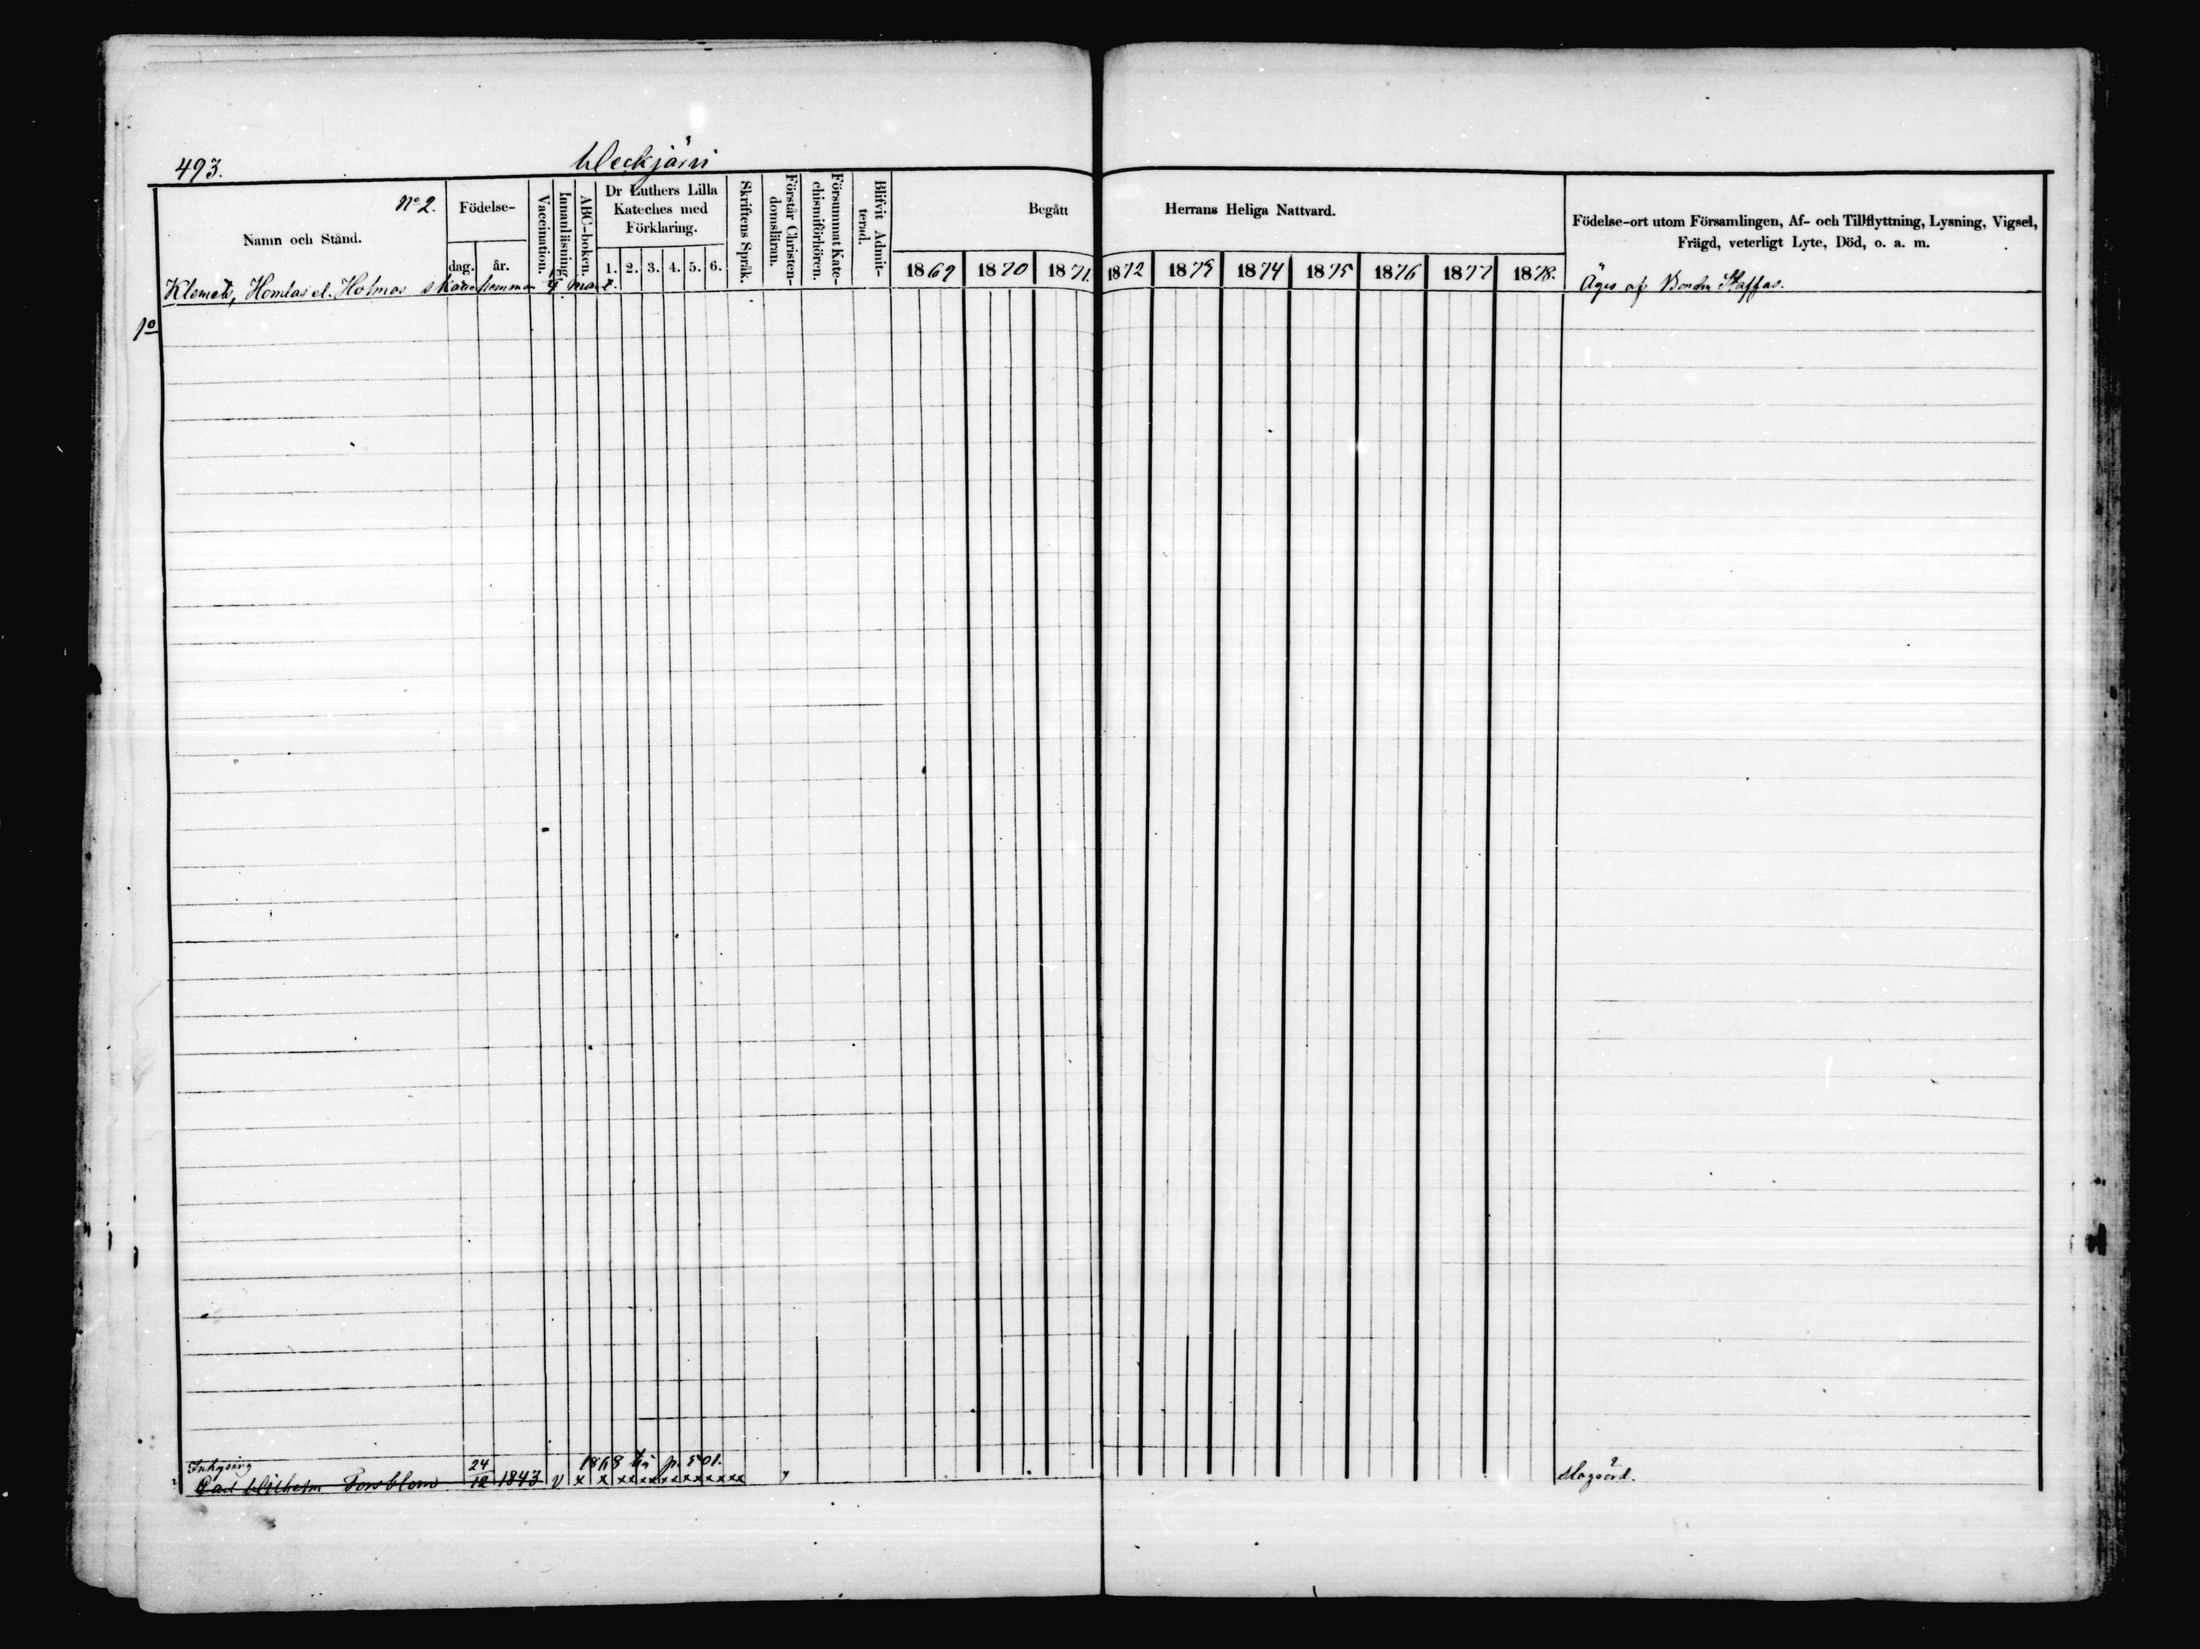 493. Uleckjärvi
No 2.
Namn och Stånd.
Födelse-
dag. år.
Vaccination.
Innanläsning.
ABC-boken.
Dr Luthers Lilla
Kateches med
Förklaring.
1. 2. 3. 4. 5. 6.
Skriftens Språk.
Förstår Christen-
domsläran.
Försummat Kate-
chismiförhören.
Blifvit Admit-
terad.
Begått Herrans Heliga Nattvard.
1869 1870 1871. 1872 1873 1874 1875 1876 1877 1878.
Födelse-ort utom Församlingen, Af- och Tillflyttning, Lysning, Vigsel,
Frägd, veterligt Lyte, Död, o. a. m.
Klemets, Homlas el. Holmas skattehemman
Äges af Bonden Staffas.
10
Inhysing 24 1868 p. 501.
Carl Wilhelm Forsblom 12 1843 V x x xx xx xx xx xx xx